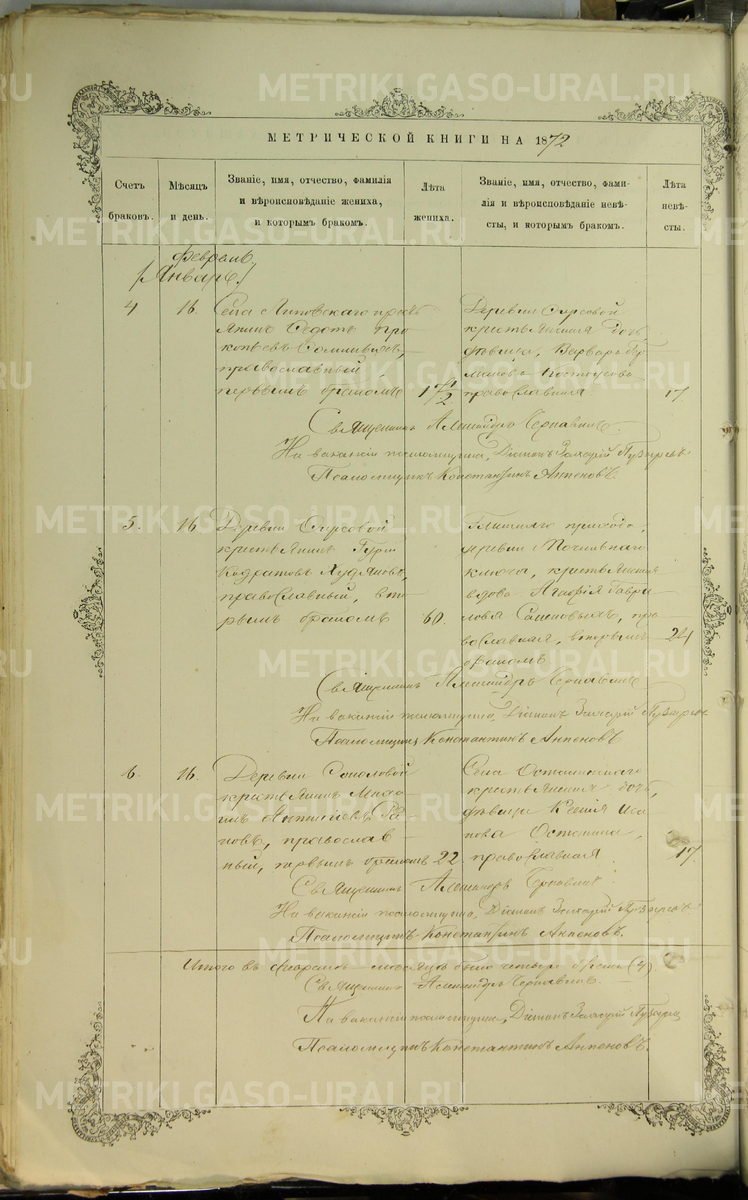 METRIKI.GASO-URAL.RU
МЕТРИЧЕСКОЙ КНИГИ НА 1872
Счетъ браковъ.
Мѣсяцъ и день.
Званіе, имя, отчество, фамилія
и вѣроисповѣданіе жениха,
и которымъ бракомъ.
Лѣта жениха.
Званіе, имя, отчество, фами-
лія и вѣроисповѣданіе невѣ-
сты, и которымъ бракомъ.
Лѣта невѣ-
сты.
Февраль
/Январь/
4
16.
Села Липовскаго крест
янинъ Федотъ Про
копьевъ
православный,
первымъ бракомъ
17 1/2
Деревни Фирсовой
крестьянина дочь
дѣвица, Варвара
православная
17.
Священникъ Александръ Чернавинъ.
На вакансіи псаломщика, Діаконъ Захарій Пузыревъ
Псаломщикъ Константинъ
5.
16
Деревни Фирсовой
крестьянинъ
православный, вто
рымъ бракомъ
60.
прихода,
деревни
ключа, крестьянская
вдова Агафія Гаври
лова пра
вославная, вторымъ
бракомъ
24
Священникъ Александръ Чернавинъ
На вакансіи псаломщика, Діаконъ Захарій Пузыревъ
Псаломщикъ Константинъ
6.
16.
Деревни Соколовой
крестьянинъ
православ
ный, первымъ бракомъ
22.
Села Останинскаго
крестьянина дочь,
дѣвица Ксенія Ива
нова Останина,
православная
17
Священникъ Александръ Чернавинъ
На вакансіи псаломщика, Діаконъ Захарій Пузыревъ
Псаломщикъ Константинъ
Итого въ Февралѣ мѣсяцѣ было четыре брака (4)
Священникъ Александръ Чернавинъ.
На вакансіи псаломщика, Діаконъ Захарій Пузыревъ
Псаломщикъ Константинъ